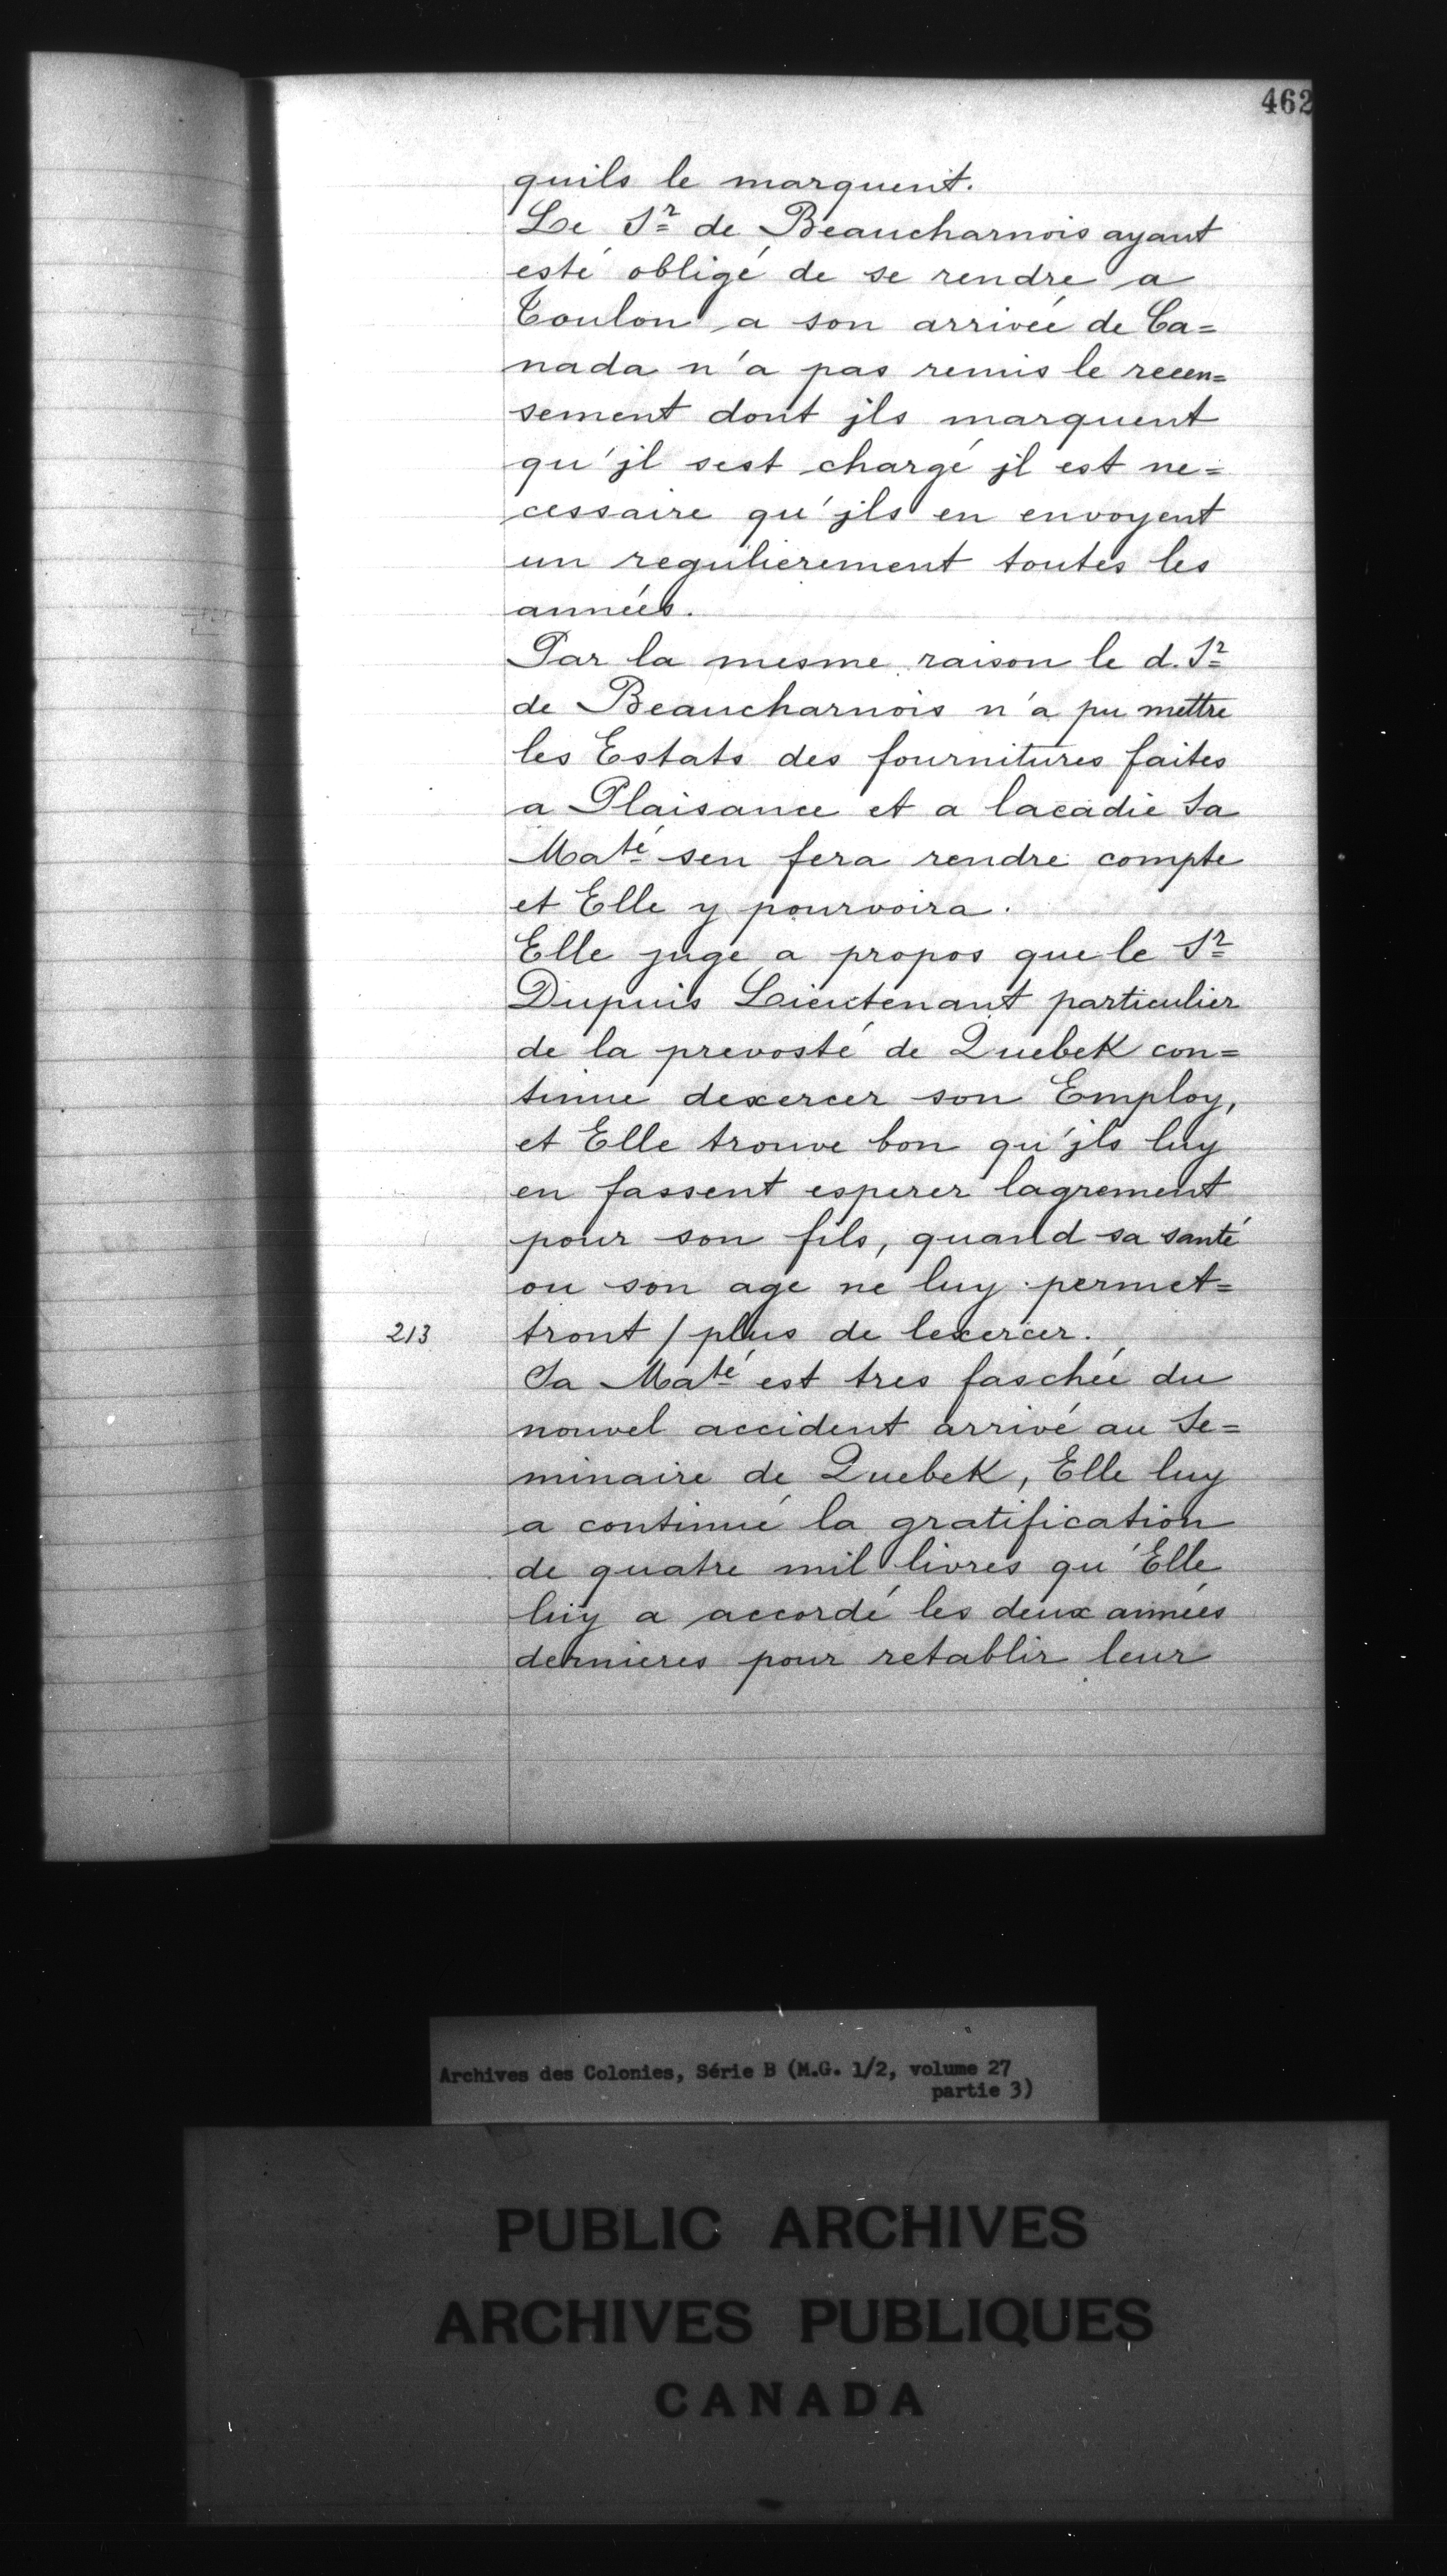 462
quils le marquent.
Le Sr de Beaucharnois ayant
esté obligé de se rendre a
Toulon a son arrivée de Ca=
nada n'a pas remis le recen=
sement dont jls marquent
qu'jl sest chargé jl est ne=
cessaire qu'jls en envoyent
un regulierement toutes les
années.
Par la mesme raison le d. Sr
de Beaucharnois n'a pu mettre
les Estats des fournitures faites
a Plaisance et a lacadie Sa
Maté sen fera rendre compte
et Elle y pourvoira.
Elle juge a propos que le Sr
Dupuis Lieutenant particulier
de la prevosté de QuebeK con=
tinue dexercer son Employ,
et Elle trouve bon qu'jls luy
en fassent esperer lagrement
pour son fils, quand sa santé
ou son age ne luy permet=
213 tront / plus de lexercer.
Sa Maté est tres faschée du
nouvel accident arrivé au Se=
minaire de QuebeK, Elle luy
a continué la gratification
de quatre mil livres qu'Elle
luy a accordé les deux années
dernieres pour retablir leur
Archives des Colonies, Série B (M.G. 1/2, volume 27
partie 3)
PUBLIC ARCHIVES
ARCHIVES PUBLIQUES
CANADA